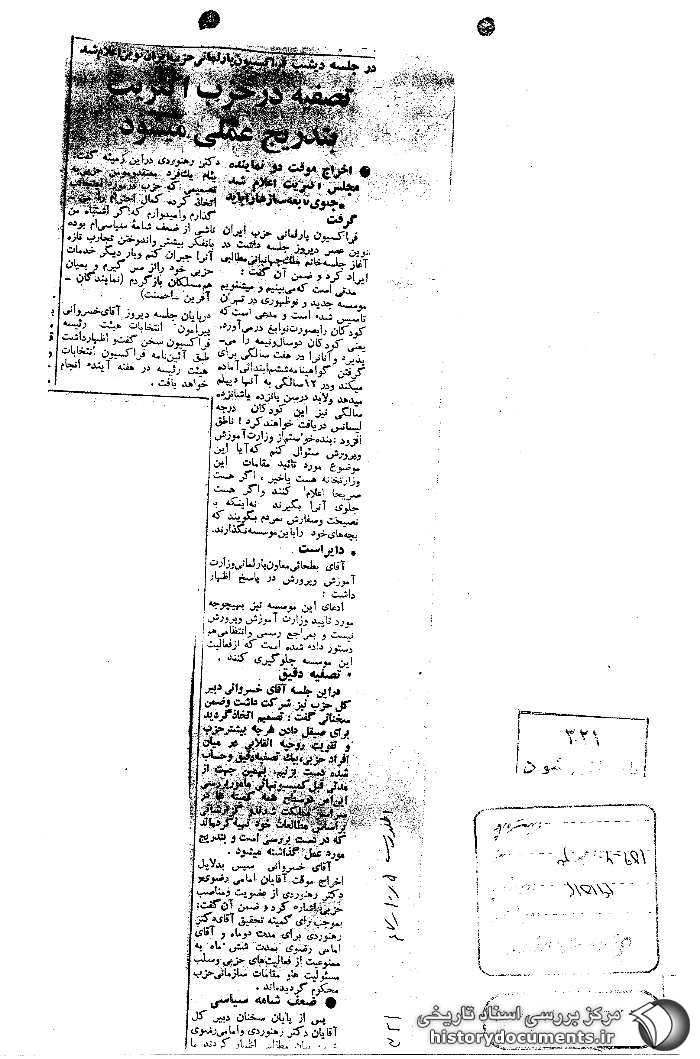 در جلسه دیشب فراکسیون پارلمانی حزب ایران نوین اعلام شد
تصفیه در حزب اکثریت
بتدریج عملی میشود
● اخراج موقت دو نماینده
مجلس اکثریت اعلام شد
جلوی نابغه‌سازها را باید
گرفت
فراکسیون پارلمانی حزب ایران
نوین عصر دیروز جلسه داشت در
آغاز جلسه خانم ملک جهانبانی مطالبی
ایراد کرد و ضمن آن گفت :
مدتی است که می‌بینیم و میشنویم
موسسه جدید و نوظهوری در تهران
تاسیس شده است و مدعی است که
کودکان را بصورت نوابغ درمی‌آورد.
یعنی کودکان دوسال‌ونیمه را می‌ـ
پذیرد و آنانرا در هفت سالگی برای
گرفتن گواهینامه ششم ابتدائی آماده
میکند ودر ۱۲ سالگی به آنها دیپلم
میدهد ولابد درسن پانزده یاشانزده
سالگی نیز این کودکان درجه
لیسانس دریافت خواهند کرد ! ناطق
افزود : بنده خواستم از وزارت آموزش
وپرورش سئوال کنم که آیا این
موضوع مورد تائید مقامات این
وزارتخانه هست یاخیر ، اگر هست
صریحا اعلام کنند واگر هست
جلوی آنرا بگیرند نه‌اینکه با
نصیحت وسفارش بمردم بگویند که
بچه‌های خود را باین موسسه نگذارند.
• دایر است
آقای بطحائی معاون پارلمانی وزارت
آموزش وپرورش در پاسخ اظهار
داشت :
ادعای این موسسه نیز بهیچوجه
مورد تایید وزارت آموزش وپرورش
نیست و بمراجع رسمی وانتظامی هم
دستور داده شده است که از فعالیت
این موسسه جلوگیری کنند .
• تصفیه دقیق
در این جلسه آقای خسروانی دبیر
کل حزب نیز شرکت داشت وضمن
سخنانی گفت : تصمیم اتخاذ گردید
برای صیقل دادن هرچه بیشتر حزب
و تقویت روحیه انقلابی در میان
افراد حزبی، بیک تصفیه دقیق وحساب
شده دست بزنیم. بهمین جهت از
مدتی قبل کمیسیونهائی مامور بررسی
این امر در سطح همه کمیته ها در
سراسر مملکت شده‌اند گزارشهائی
براساس مطالعات خود تهیه کرده‌اند
که در دست بررسی است و بتدریج
مورد عمل گذاشته میشود .
آقای خسروانی سپس بدلایل
اخراج موقت آقایان امامی رضوی و
دکتر رهنوردی از عضویت ومناصب
حزبی اشاره کرد و ضمن آن گفت:
بموجب رای کمیته تحقیق آقای دکتر
رهنوردی برای مدت دوماه و آقای
امامی رضوی بمدت شش ماه به
ممنوعیت از فعالیت‌های حزبی وسلب
مسئولیت ها و مقامات سازمانی حزب
محکوم گردیده‌اند .
● ضعف شامه سیاسی
پس از پایان سخنان دبیر کل
آقایان دکتر رهنوردی و امامی رضوی
مطالبی اظهار کردند
دکتر رهنوردی در این زمینه گفت:
بنام یک فرد معتقد ومومن حزبی به
تصمیمی که حزب درمورد اینجانب
اتخاذ کرده کمال احترام را می
گذارم وامیدوارم که اگر اشتباه من
ناشی از ضعف شامۀ سیاسی‌ام بوده
باتفکر بیشتر واندوختن تجارب تازه
آنرا جبران کنم وبار دیگر خدمات
حزبی خود را از سر گیرم و بمیان
هم‌مسلکان بازگردم (نمایندگان ـ
آفرین ـ احسنت)
درپایان جلسه دیروز آقای خسروانی
پیرامون انتخابات هیئت رئیسه
فراکسیون سخن گفت و اظهار داشت
طبق آئین‌نامه فراکسیون انتخابات
هیئت رئیسه در هفته آینده انجام
خواهد یافت .
۳۲۱
شود
مرکز بررسی اسناد تاریخی
historydocuments.ir